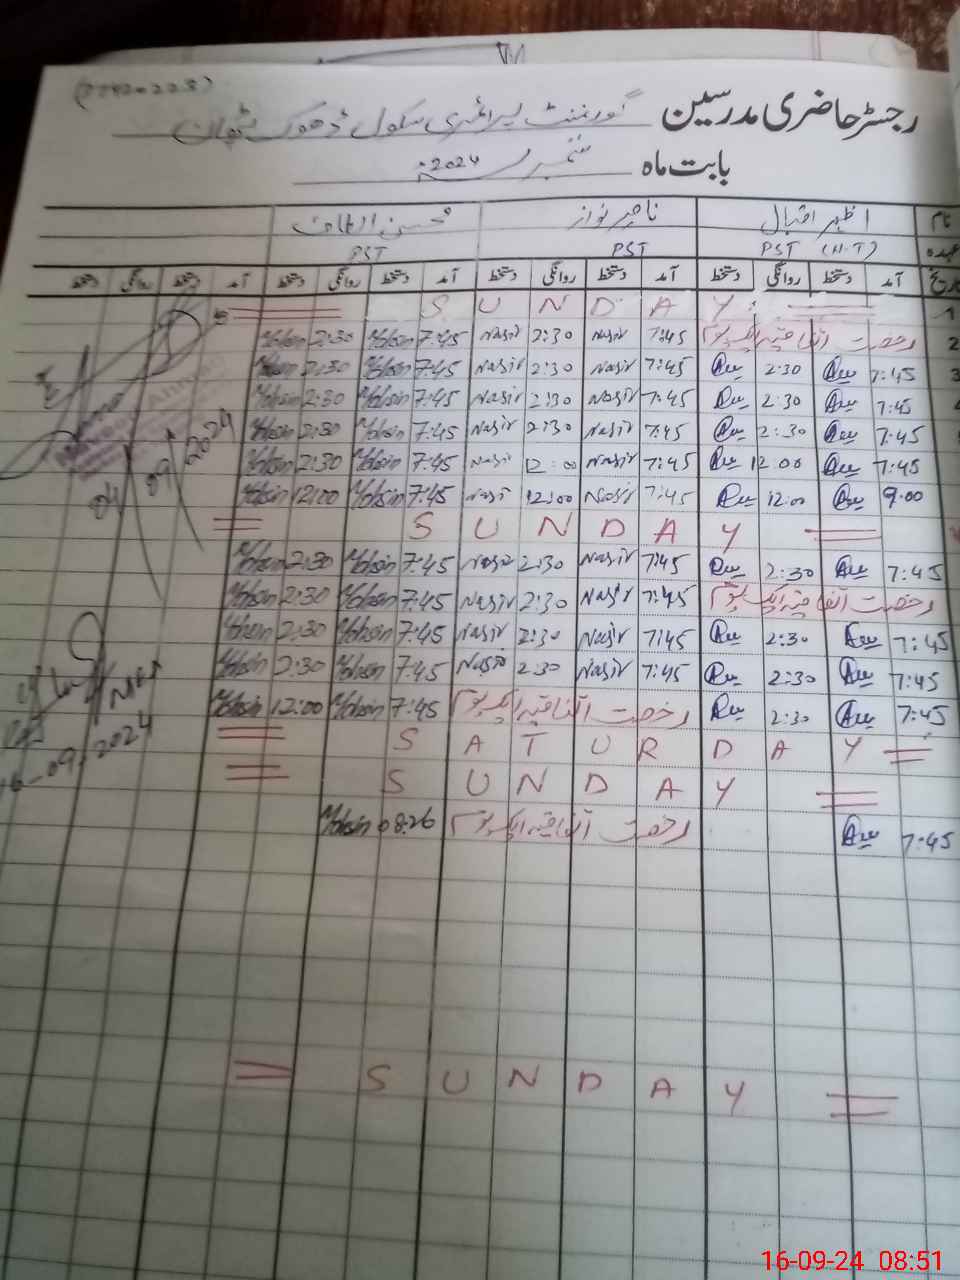 رجسٹر حاضری مدرسین گورنمنٹ پرائمری سکول ڈھوک پٹھان
بابت ماہ ستمبر 2024ء
نام اظہر اقبال ناصر نواز محسن الطاف
عہدہ PST (H.T) PST PST
تاریخ آمد دستخط روانگی دستخط آمد دستخط روانگی دستخط آمد دستخط روانگی دستخط آمد دستخط روانگی دستخط
1 SUNDAY
2 رخصت اتفاقیہ ایک یوم 7:45 Nasir 2:30 Nasir 7:45 Mohsin 2:30 Mohsin
3 7:45 2:30 7:45 Nasir 2:30 Nasir 7:45 Mohsin 2:30 Mohsin
7:45 2:30 7:45 Nasir 2:30 Nasir 7:45 Mohsin 2:30 Mohsin
7:45 2:30 7:45 Nasir 2:30 Nasir 7:45 Mohsin 2:30 Mohsin
7:45 12:00 7:45 Nasir 12:00 Nasir 7:45 Mohsin 2:30 Mohsin
9:00 12:00 7:45 Nasir 12:00 Nasir 7:45 Mohsin 12:00 Mohsin
SUNDAY
7:45 2:30 7:45 Nasir 2:30 Nasir 7:45 Mohsin 2:30 Mohsin
رخصت اتفاقیہ ایک یوم 7:45 Nasir 2:30 Nasir 7:45 Mohsin 2:30 Mohsin
7:45 2:30 7:45 Nasir 2:30 Nasir 7:45 Mohsin 2:30 Mohsin
7:45 2:30 7:45 Nasir 2:30 Nasir 7:45 Mohsin 2:30 Mohsin
7:45 2:30 رخصت اتفاقیہ ایک یوم 7:45 Mohsin 12:00 Mohsin
SATURDAY
SUNDAY
7:45 رخصت اتفاقیہ ایک یوم 08:26 Mohsin
SUNDAY
04/09/2024
16-09-2024
16-09-24 08:51